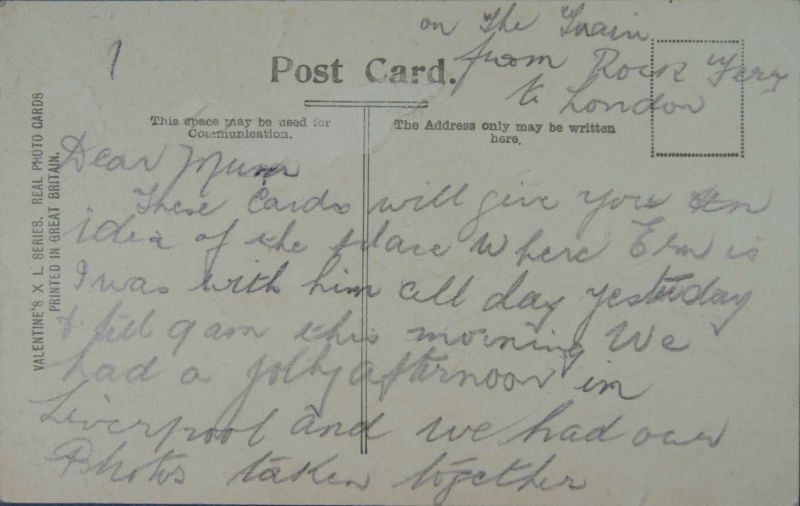 1
on The Train
from Rock Fery
to London
Post Card.
This space may be used for
Communication.
The Address only may be written
here.
VALENTINE'S X L SERIES. REAL PHOTO CARDS
PRINTED IN GREAT BRITAIN.
Dear Mum
These Cards will give you an
idea of the place where Ern is
I was with him all day yesterday
& till 9 am this morning We
had a jolly afternoon in
Liverpool and we had our
Photos taken together